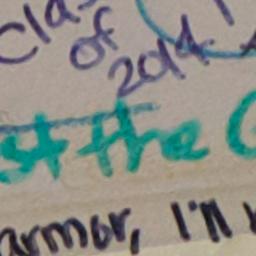 Clas
of
2014
st the
armor, I'll